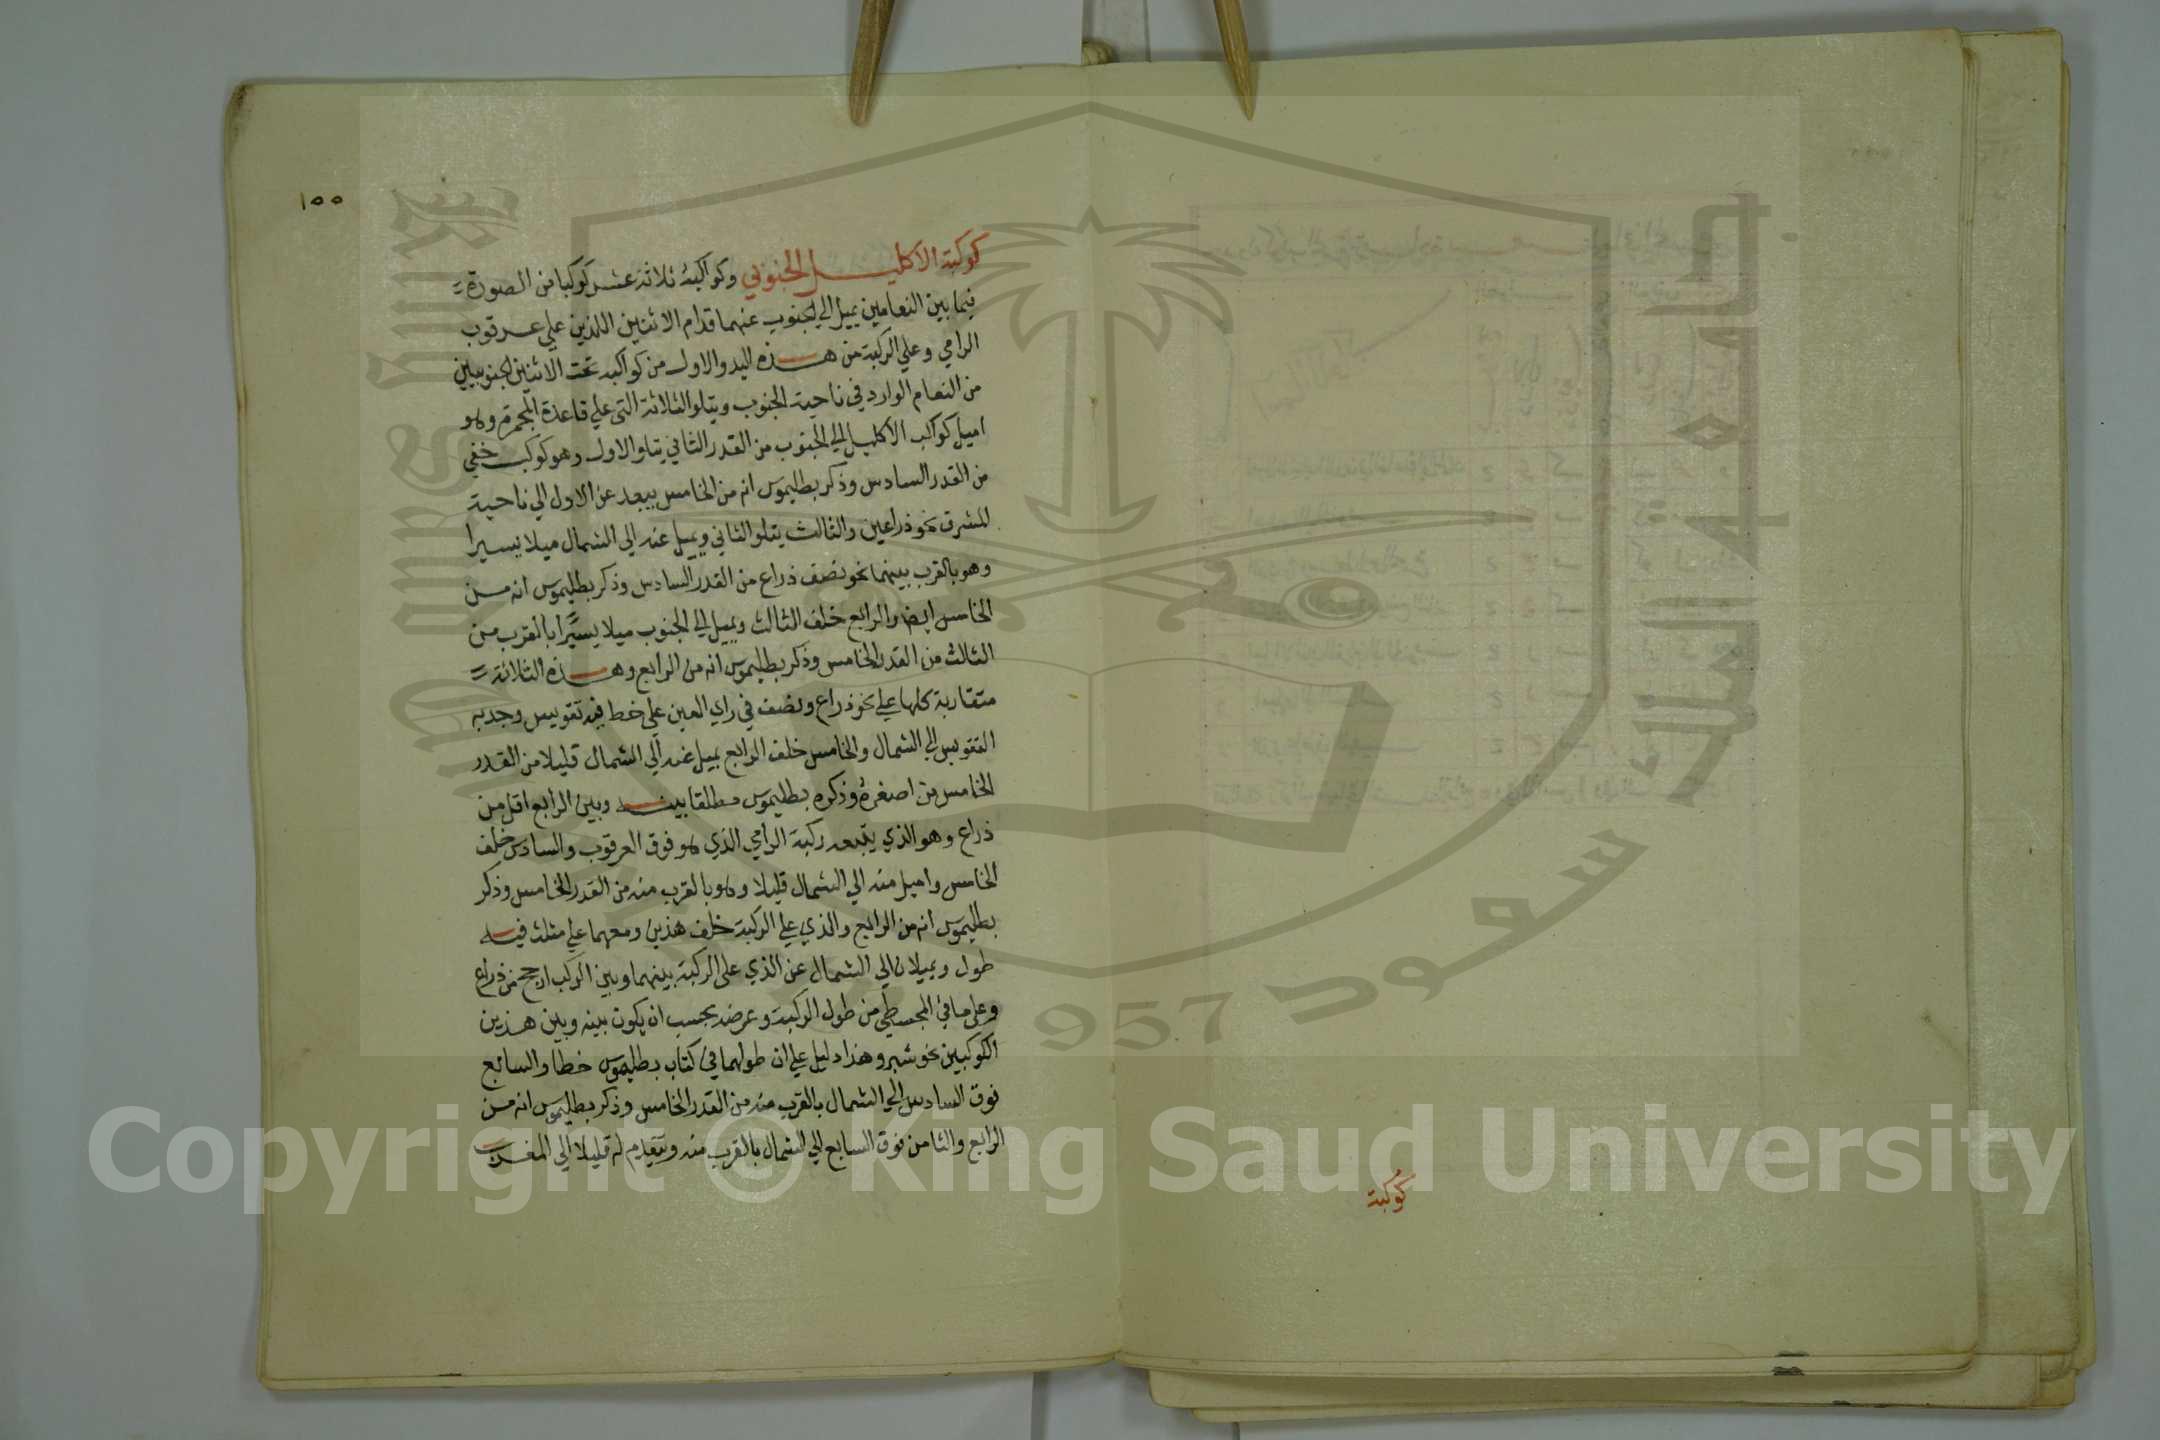 ١٥٥
كوكبة الاكليل الجنوبي وكواكبه ثلاثة عشر كوكبا من الصورة
فيما بين النعامين يميل الي الجنوب عنهما قدام الاثنين اللذين علي عرقوب
الرامي وعلي الركبة من هذه اليد والاول من كواكبه تحت الاثنين الجنوبيين
من النعام الوارد في ناحية الجنوب ويتلو الثلاثة التي علي قاعدة المجمرة وهو
اميل كواكب الاكليل الي الجنوب من القدر الثاني يتلو الاول وهو كوكب خفي
من القدر السادس وذكر بطليموس انه من الخامس يبعد عن الاول الي ناحية
المشرق نحو ذراعين والثالث يتلو الثاني ويميل عنه الي الشمال ميلا يسيرا
وهو بالقرب بينهما نحو نصف ذراع من القدر السادس وذكر بطليموس انه من
الخامس ايضا والرابع خلف الثالث ويميل الي الجنوب ميلا يسيرا بالقرب من
الثالث من القدر الخامس وذكر بطليموس انه من الرابع وهذه الثلاثة
متقاربة كلها علي نحو ذراع ونصف في راي العين علي خط فيه تقويس وحدبه
التقويس الي الشمال والخامس خلف الرابع يميل عنه الي الشمال قليلا من القدر
الخامس من اصغره وذكره بطليموس مطلقا بينه وبين الرابع اقل من
ذراع وهو الذي يتبعه ركبة الرامي الذي هو فوق العرقوب والسادس خلف
الخامس واميل منه الي الشمال قليلا وهو بالقرب منه من القدر الخامس وذكر
بطليموس انه من الرابع والذي علي الركبة خلف هذين ومعهما علي مثلث فيه
طول ويميلان الي الشمال عن الذي علي الركبة بينهما وبين الركب ارجح من ذراع
وعلي ما في المجسطي من طول الركبة وعرضه يحسب ان يكون بينه وبين هذين
الكوكبين نحو شبر وهذا دليل علي ان طولهما في كتاب بطليموس خطا والسابع
فوق السادس الي الشمال بالقرب منه من القدر الخامس وذكر بطليموس انه من
الرابع والثامن فوق السابع الي الشمال بالقرب منه ويتقدم له قليلا الي المغرب
كوكبة
سعود
1957
Copyright © King Saud University